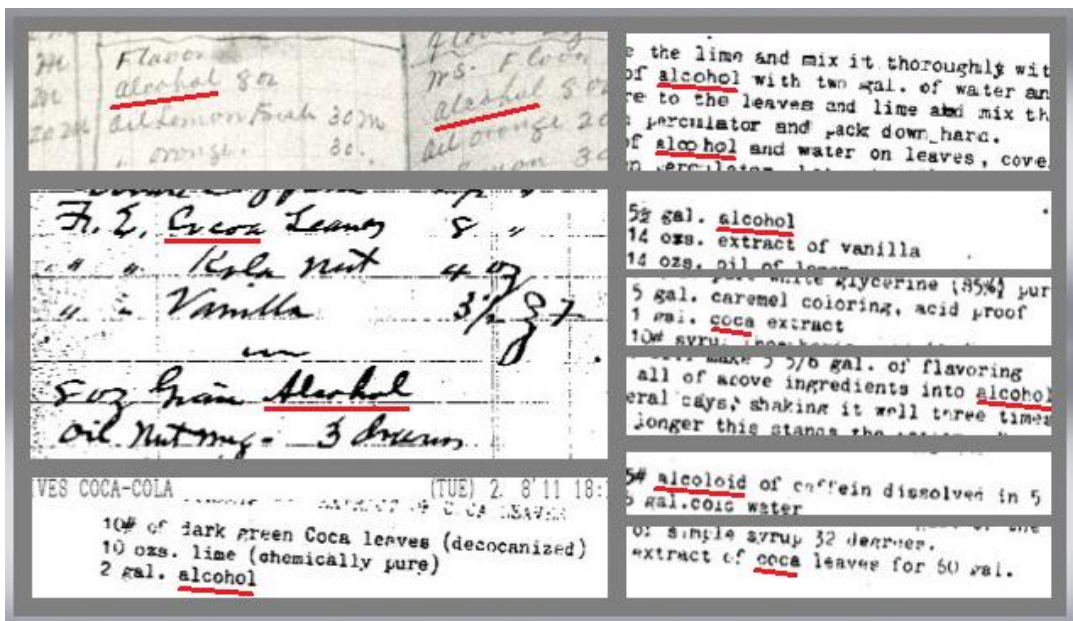 Flavor
Alcohol 8 oz
oil Lemon Fresh 30 m
" orange. 30.
Alcohol 8 oz
oil orange 20
30
Fl. E. Cocoa Leaves 8 "
" " Kola Nut 4 oz
" " Vanilla 3 1/2
8 oz Grain Alcohol
oil Nutmeg - 3 drams
VES COCA-COLA (TUE) 2. 8'11 18:
10# of dark green Coca leaves (decocanized)
10 ozs. lime (chemically pure)
2 gal. alcohol
e the lime and mix it thoroughly wit
of alcohol with two gal. of water an
re to the leaves and lime and mix th
perculator and pack down hard.
of alcohol and water on leaves, cove
5½ gal. alcohol
14 ozs. extract of vanilla
14 ozs. oil of
white glycerine (85%) pur
5 gal. caremel coloring, acid proof
1 gal. coca extract
10# syru
make 5 5/6 gal. of flavoring
all of above ingredients into alcohol
eral days, shaking it well three times
longer this stands the
5# alcoloid of caffein dissolved in 5
gal.cold water
of simple syrup 32 degrees.
extract of coca leaves for 60 gal.